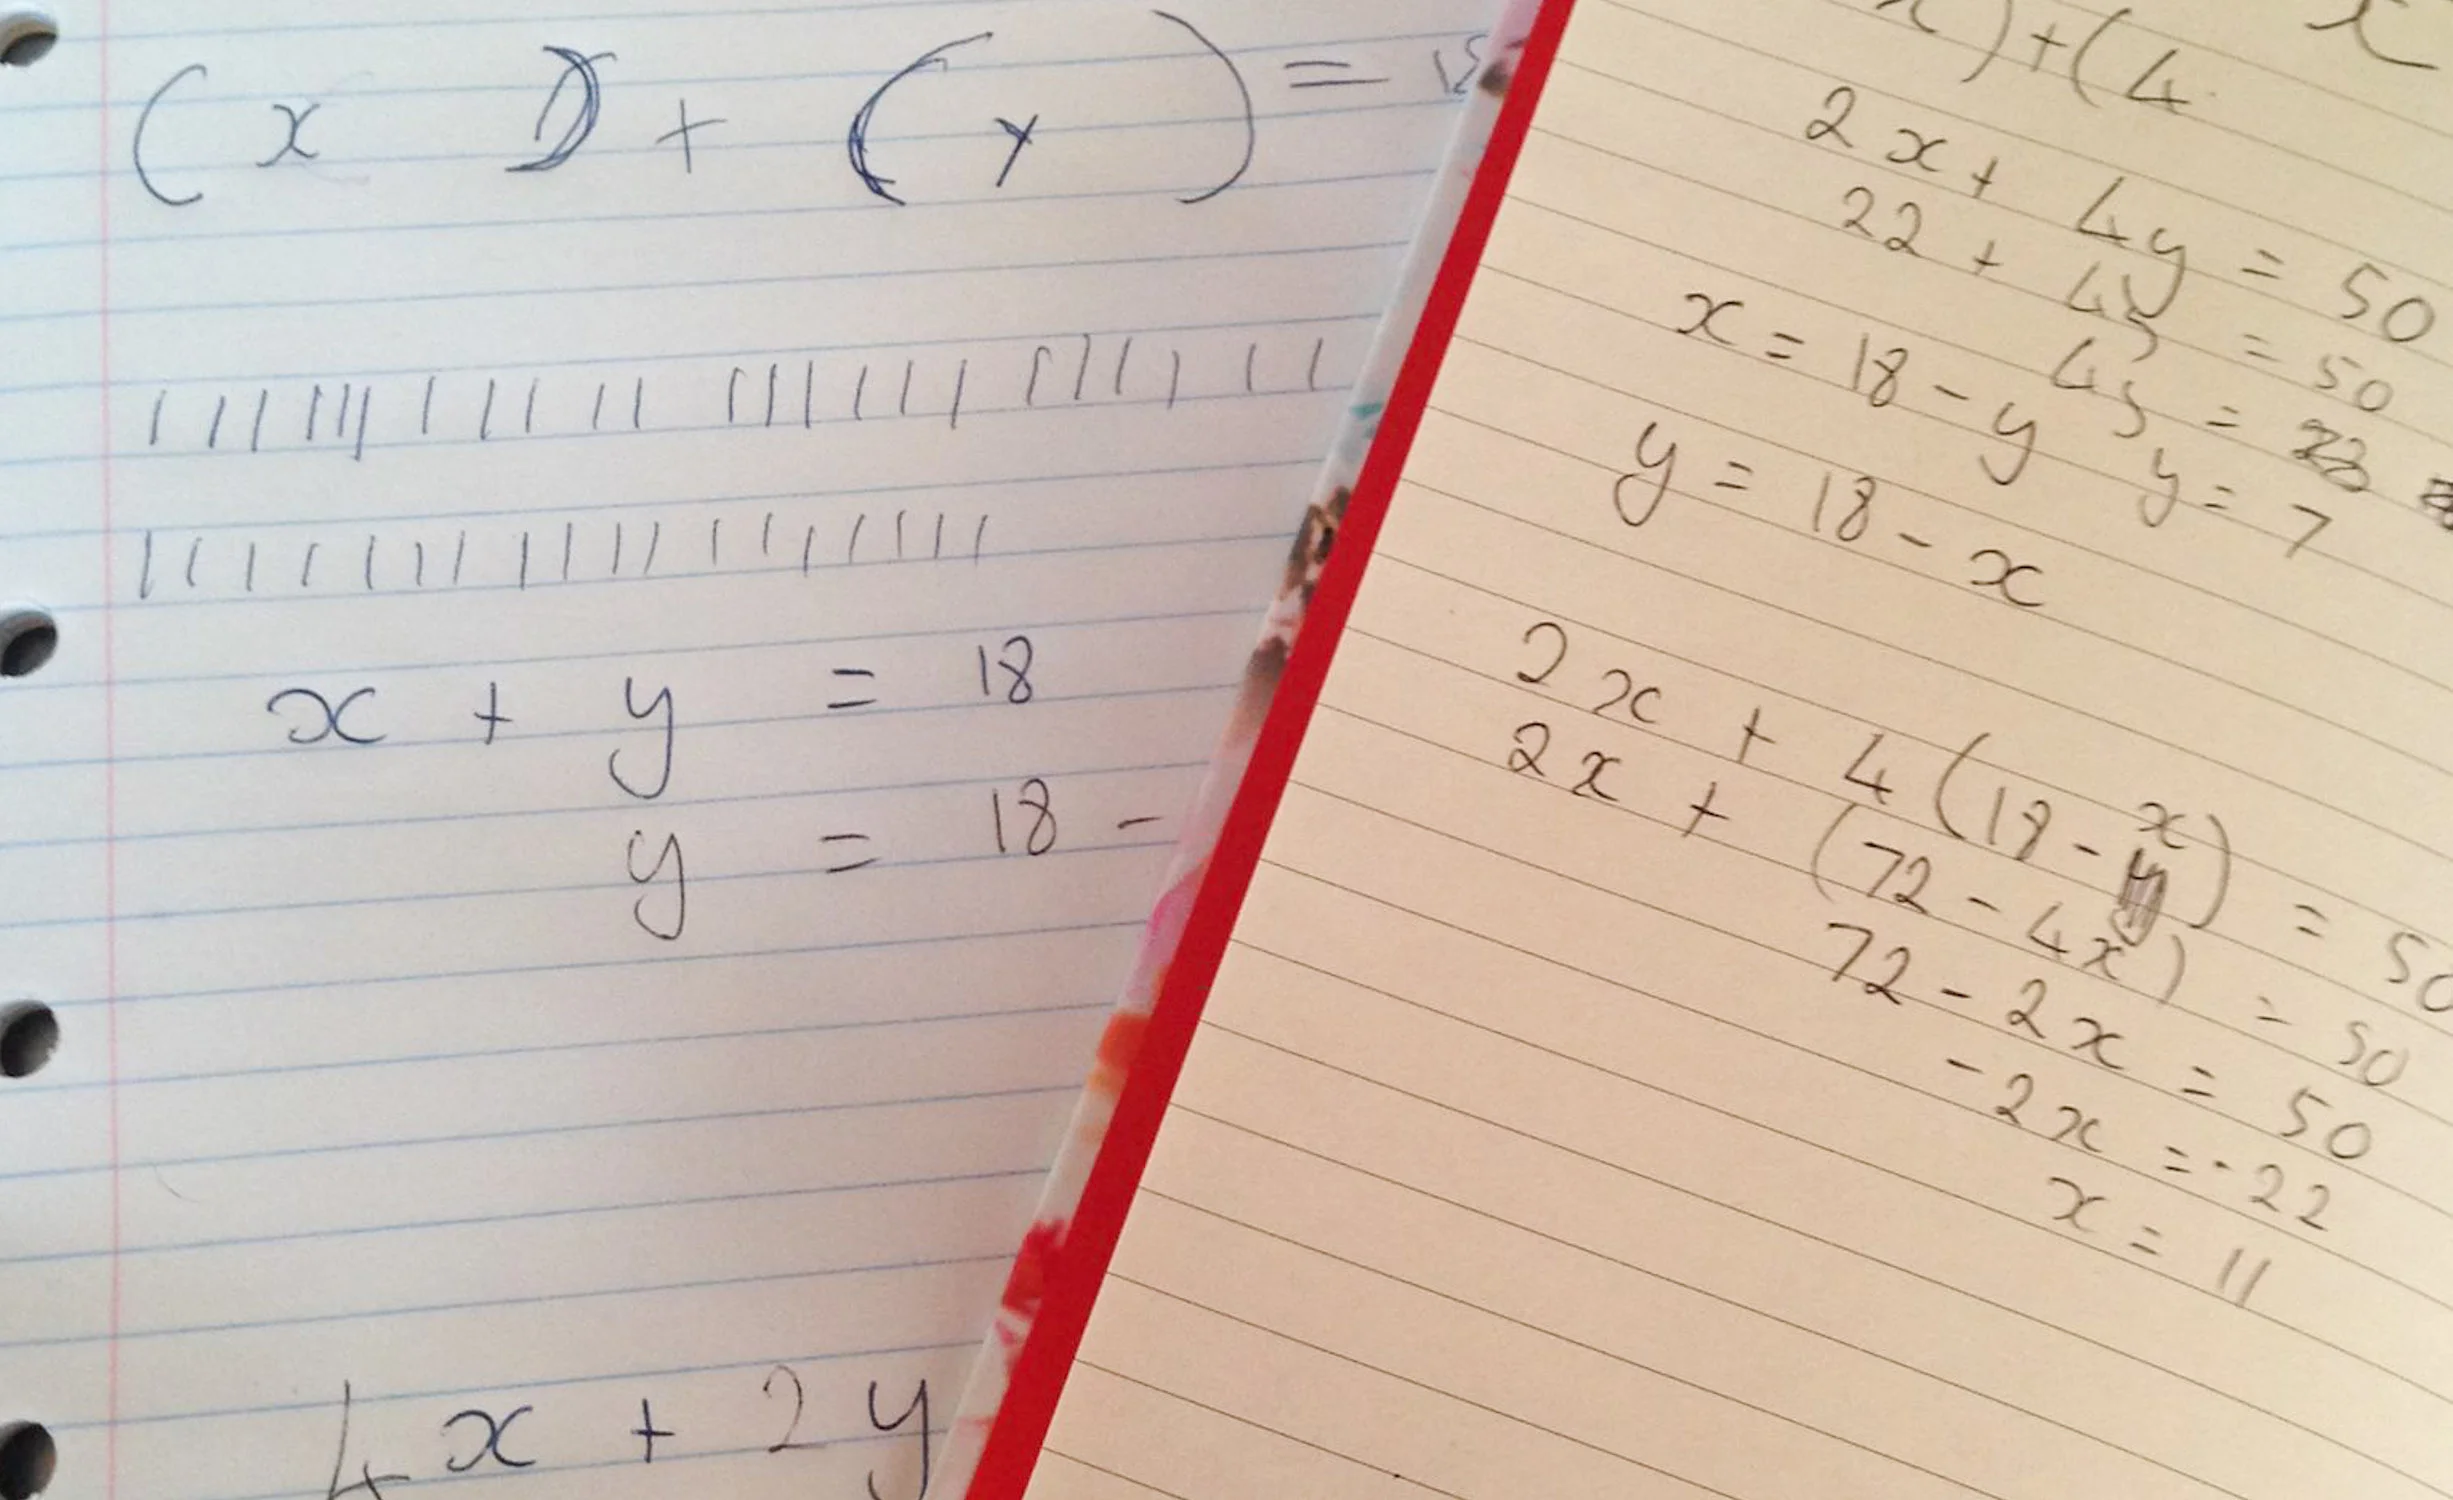 ( x ) + ( y ) =
x + y = 18
y = 18 -
4x + 2y
) + ( 4
2x + 4y = 50
22 + 4y = 50
4y =
y = 7
x = 18 - y
y = 18 - x
2x + 4(18 - x) = 50
2x + (72 - 4x) = 50
72 - 2x = 50
-2x = -22
x = 11